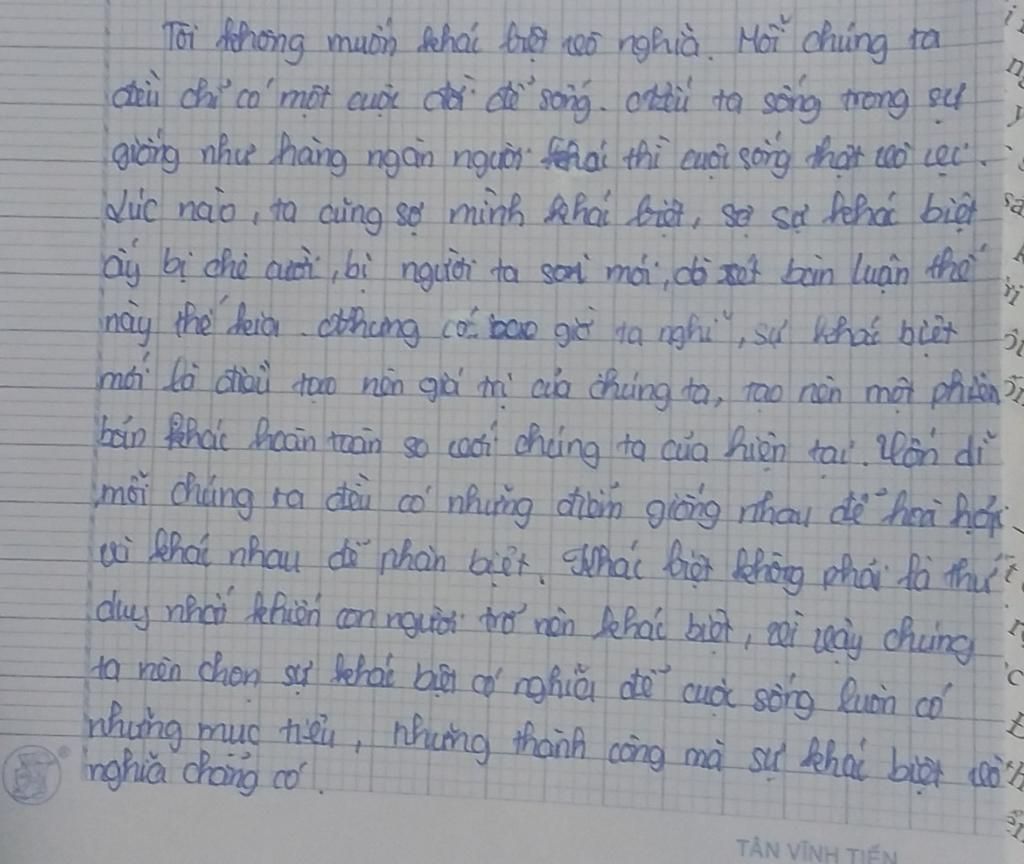 Tôi không muốn khác biệt vô nghĩa. Mỗi chúng ta
đều chỉ có một cuộc đời để sống. Nếu ta sống trong sự
giống như hàng ngàn người khác thì cuộc sống thật vô vị.
Lúc nào, ta cũng sợ mình khác biệt, sợ sự khác biệt
ấy bị chê cười, bị người ta soi mói, dò xét bàn luận thế
này thế kia. Nhưng có bao giờ ta nghĩ, sự khác biệt
mới là điều tạo nên giá trị của chúng ta, tạo nên một phiên
bản khác hoàn toàn so với chúng ta của hiện tại. Vốn dĩ
mỗi chúng ta đều có những điểm giống nhau để hoà hợp
và khác nhau để phân biệt. Khác biệt không phải là thứ
duy nhất khiến con người trở nên khác biệt, vì vậy chúng
ta nên chọn sự khác biệt có nghĩa để cuộc sống luôn có
những mục tiêu, những thành công mà sự khác biệt vô
nghĩa chẳng có.
TÂN VĨNH TIẾN